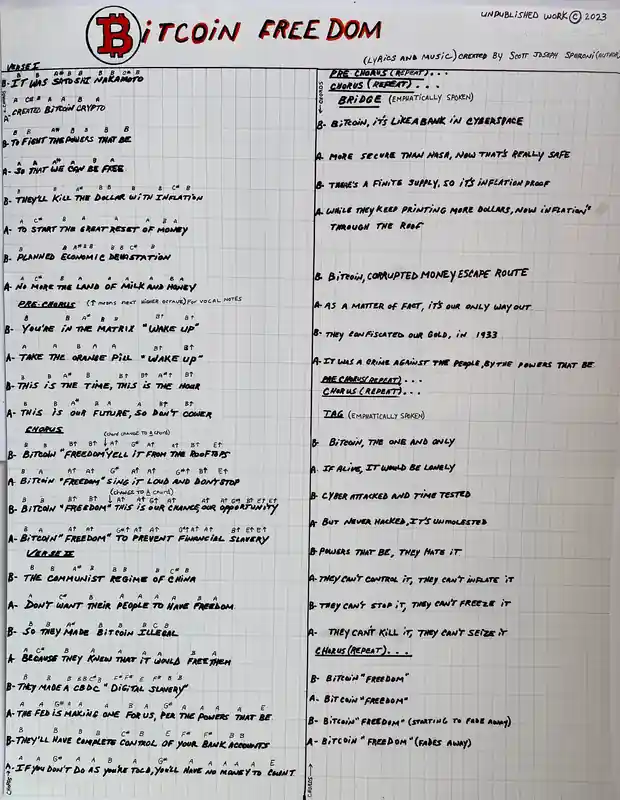 BITCOIN FREEDOM
UNPUBLISHED WORK © 2023
(LYRICS AND MUSIC) CREATED BY SCOTT JOSEPH SPERONI (AUTHOR)
VERSE I
B B A# B B B B C# B
B- IT WAS SATOSHI NAKAMOTO
A C# B A A B A
A- CREATED BITCOIN CRYPTO
B B A# B B B B
B- TO FIGHT THE POWERS THAT BE
A A A# A B A
A- SO THAT WE CAN BE FREE
B B A# B B B C# B
B- THEY'LL KILL THE DOLLAR WITH INFLATION
A C# B A A B A
A- TO START THE GREAT RESET OF MONEY
B B A# B B B B C# B
B- PLANNED ECONOMIC DEVASTATION
A C# B A A A B A
A- NO MORE THE LAND OF MILK AND HONEY
PRE-CHORUS (↑ MEANS NEXT HIGHER OCTAVE) FOR VOCAL NOTES
B B A# B B B↑ B↑
B- YOU'RE IN THE MATRIX "WAKE UP"
A A B A A B↑ B↑
A- TAKE THE ORANGE PILL "WAKE UP"
B B A# B B↑ B↑ A#↑ B↑
B- THIS IS THE TIME, THIS IS THE HOUR
B B A# B A A B↑ B↑
A- THIS IS OUR FUTURE, SO DON'T COWER
CHORUS
(CHORD CHANGE TO A CHORD)
B B B↑ B↑ ↓ A↑ G# A↑ A↑ A↑ B↑ E↑
B- BITCOIN "FREEDOM" YELL IT FROM THE ROOFTOPS
B A A↑ A↑ G# A↑ A↑ G#↑ B↑ E↑
A- BITCOIN "FREEDOM" SING IT LOUD AND DON'T STOP
(CHANGE TO A CHORD)
B B B↑ B↑ ↓ A↑ A↑ G↑ A↑ A↑ A↑ G# B↑ E↑ E↑
B- BITCOIN "FREEDOM" THIS IS OUR CHANCE, OUR OPPORTUNITY
B A A↑ A↑ G#↑ A↑ A↑ G#↑ A↑ A↑ B↑ E↑ E↑
A- BITCOIN "FREEDOM" TO PREVENT FINANCIAL SLAVERY
VERSE II
B B A# B B B B C# B
B- THE COMMUNIST REGIME OF CHINA
A C# B A A A A B A
A- DON'T WANT THEIR PEOPLE TO HAVE FREEDOM.
B B A# B B B C B
B- SO THEY MADE BITCOIN ILLEGAL
A C# B A A A A B A
A BECAUSE THEY KNEW THAT IT WOULD FREE THEM
B B B B C# B F# F# E F# B B
B- THEY MADE A CBDC "DIGITAL SLAVERY"
A A G# A A B A G# A A A A E
A- THE FED IS MAKING ONE FOR US, PER THE POWERS THAT BE
B B B B C# B E F# F# B B
B- THEY'LL HAVE COMPLETE CONTROL OF YOUR BANK ACCOUNTS
A A G# A A B A G# A A A A E
A- IF YOU DON'T DO AS YOU'RE TOLD, YOU'LL HAVE NO MONEY TO COUNT
CHORDS
PRE CHORUS (REPEAT)...
CHORUS (REPEAT)...
BRIDGE (EMPHATICALLY SPOKEN)
B- BITCOIN, IT'S LIKE A BANK IN CYBERSPACE
A. MORE SECURE THAN NASA, NOW THAT'S REALLY SAFE
B- THERE'S A FINITE SUPPLY, SO IT'S INFLATION PROOF
A. WHILE THEY KEEP PRINTING MORE DOLLARS, NOW INFLATION'S
THROUGH THE ROOF
B- BITCOIN, CORRUPTED MONEY ESCAPE ROUTE
A- AS A MATTER OF FACT, IT'S OUR ONLY WAY OUT
B- THEY CONFISCATED OUR GOLD, IN 1933
A- IT WAS A CRIME AGAINST THE PEOPLE, BY THE POWERS THAT BE
PRE CHORUS (REPEAT)...
CHORUS (REPEAT)...
TAG (EMPHATICALLY SPOKEN)
B- BITCOIN, THE ONE AND ONLY
A. IF ALIVE, IT WOULD BE LONELY
B- CYBER ATTACKED AND TIME TESTED
A BUT NEVER HACKED, IT'S UNMOLESTED
B- POWERS THAT BE, THEY HATE IT
A- THEY CAN'T CONTROL IT, THEY CAN'T INFLATE IT
B- THEY CAN'T STOP IT, THEY CAN'T FREEZE IT
A- THEY CAN'T KILL IT, THEY CAN'T SEIZE IT
CHORUS (REPEAT)...
B- BITCOIN "FREEDOM"
A- BITCOIN "FREEDOM"
B- BITCOIN "FREEDOM" (STARTING TO FADE AWAY)
A- BITCOIN "FREEDOM" (FADES AWAY)
CHORDS